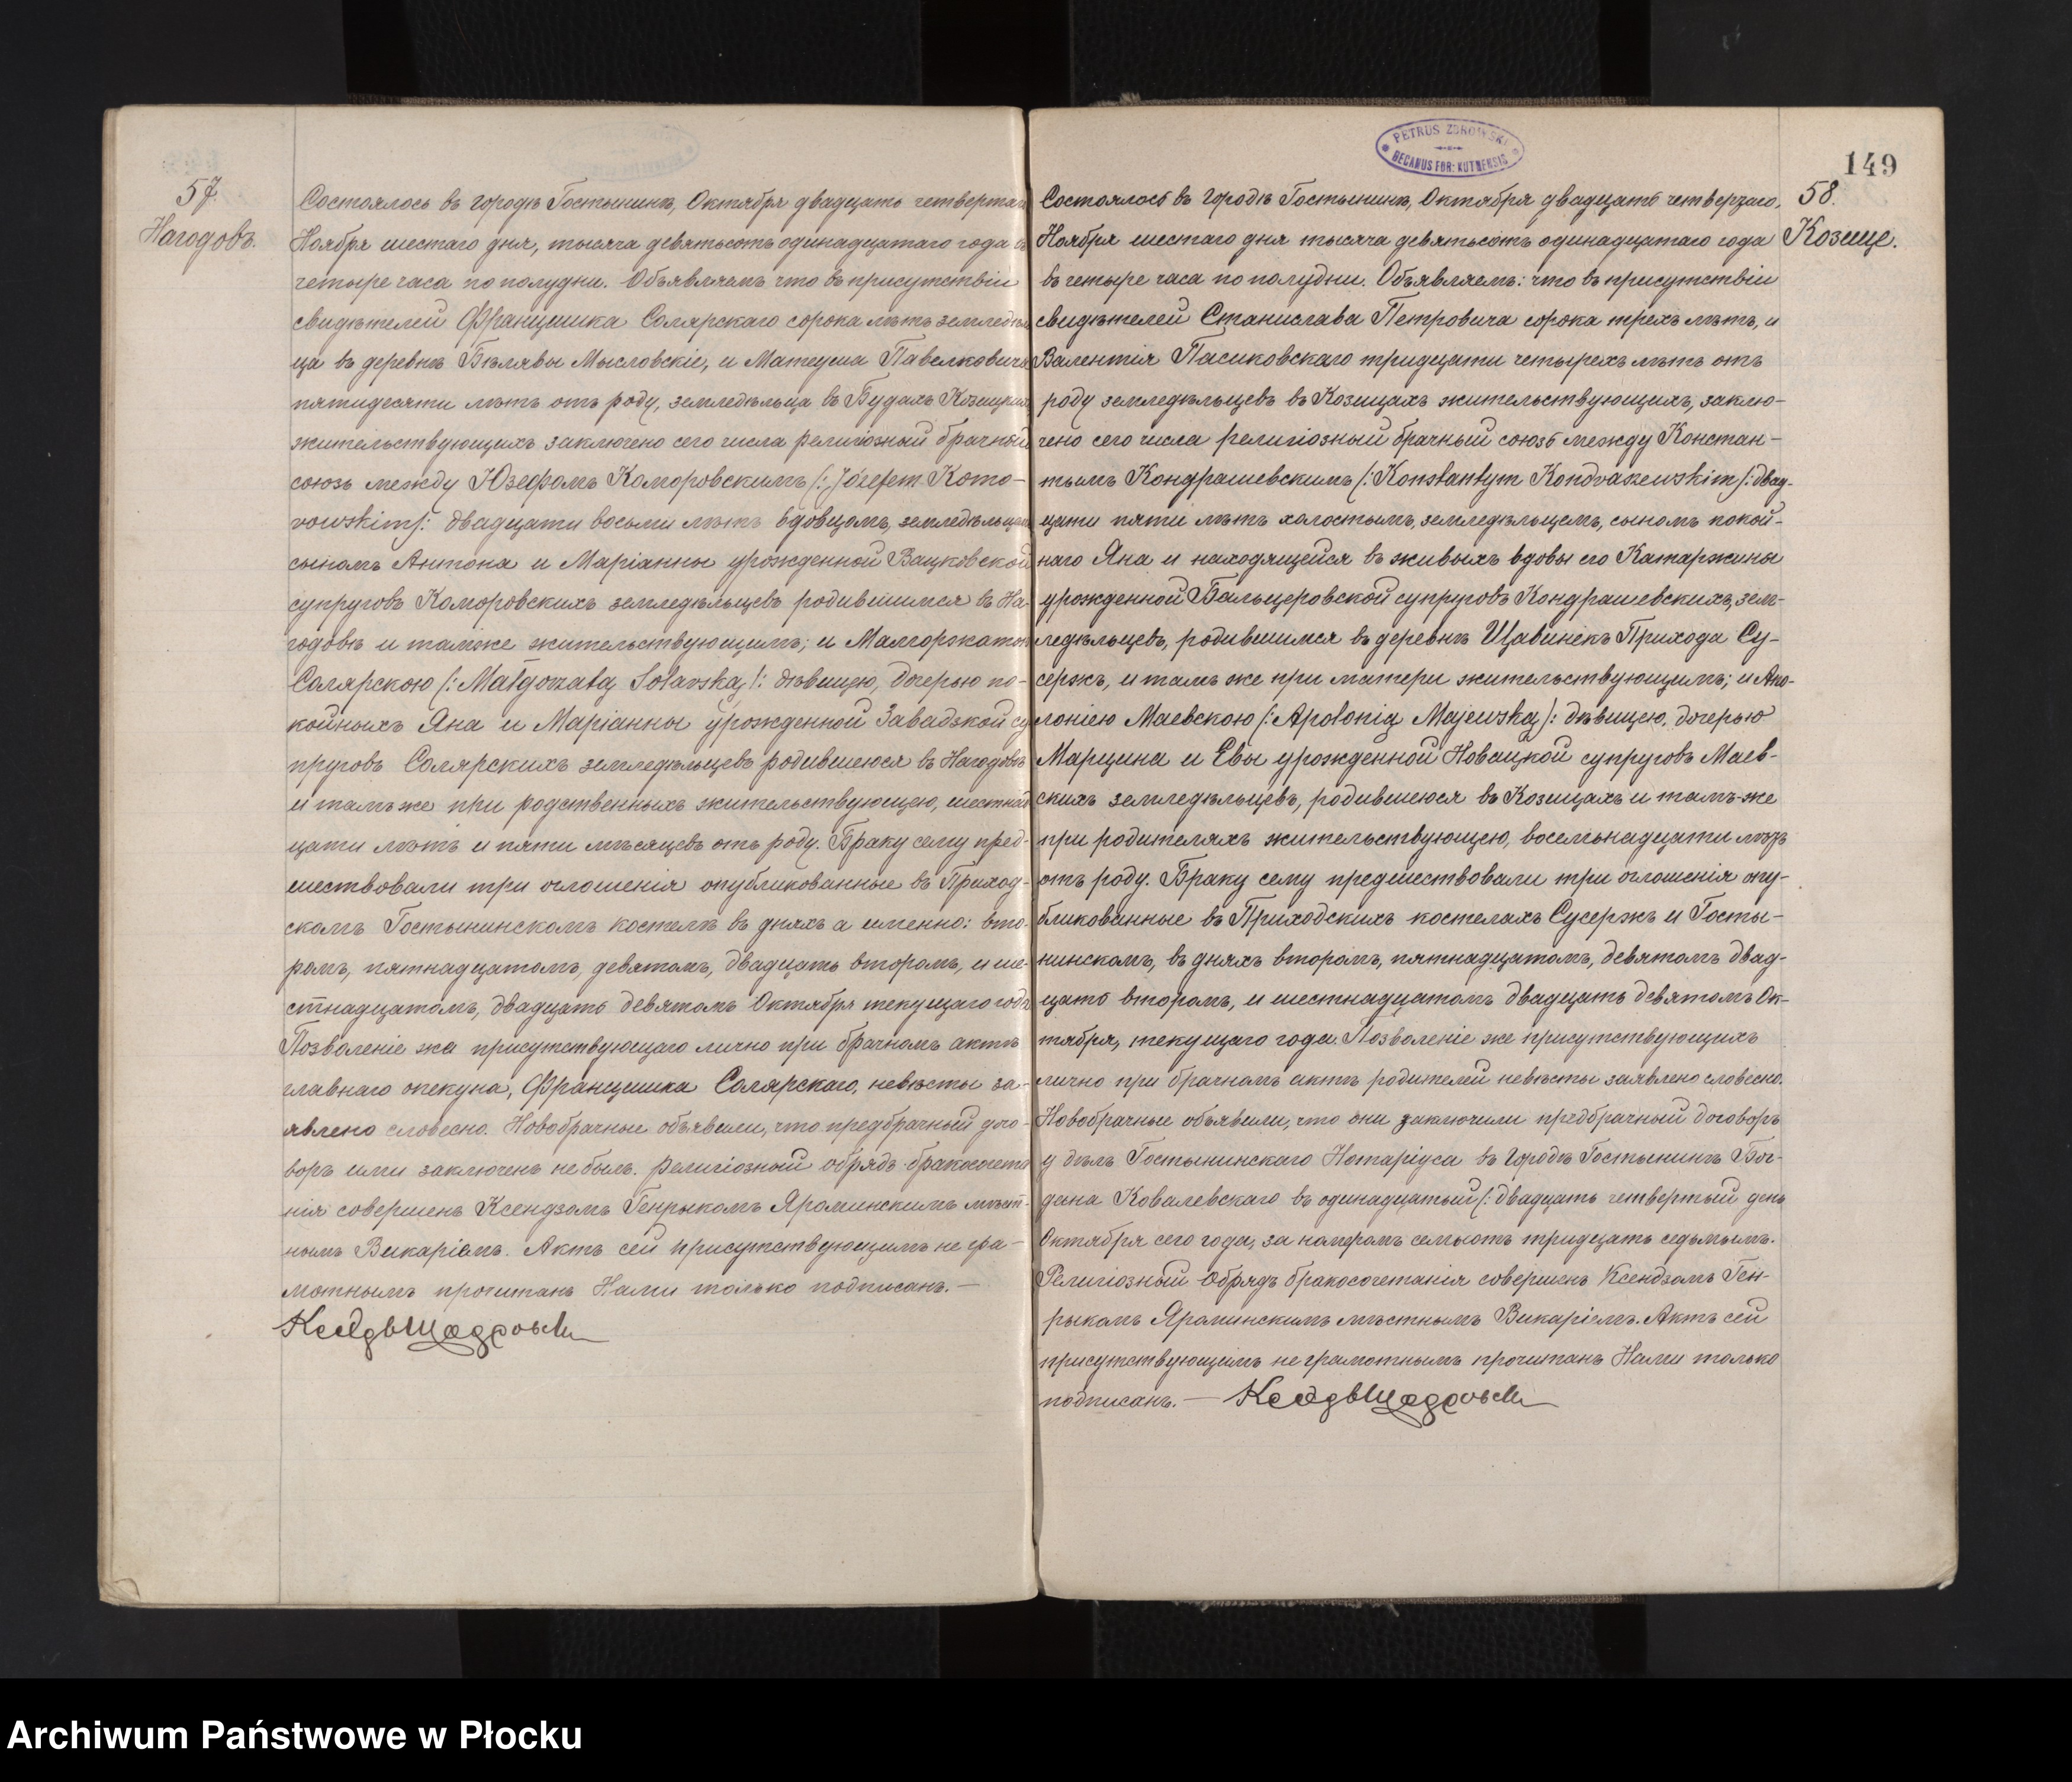 57.
Нагодовъ.
Состоялось въ городѣ Гостынинѣ, Октября двадцать четвертаго
Ноября шестаго дня, тысяча девятьсотъ одинадцатаго года въ
четыре часа по полудни. Объявляемъ что въ присутствіи
свидѣтелей Францишка Солярскаго сорока лѣтъ земледѣль
ца въ деревнѣ Бѣлявы Мысловскіе, и Матеуша Павелковича
пятидесяти лѣтъ отъ роду, земледѣльца въ Будахъ Козицкихъ
жительствующихъ заключено сего числа религіозный брачный
союзъ между Юзефомъ Коморовскимъ /: Józefem Komo-
rowskim /: двадцати восьми лѣтъ вдовцомъ, земледѣльцемъ
сыномъ Антона и Маріанны урожденной Вацковской
супруговъ Коморовскихъ земледѣльцевъ родившимся въ На-
годовѣ и тамже жительствующимъ; и Малгоржатою
Солярскою /: Małgorzatą Solarską /: дѣвицею, дочерью по-
койныхъ Яна и Маріанны урожденной Завадзкой су
пруговъ Солярскихъ земледѣльцевъ родившеюся въ Нагодовѣ
и тамъ же при родственныхъ жительствующею, шестнад
цати лѣтъ и пяти мѣсяцевъ отъ роду. Браку сему пред-
шествовали три оглошенія опубликованные въ Приход-
скомъ Гостынинскомъ костелѣ въ дняхъ а именно: вто-
ромъ, пятнадцатомъ, девятомъ, двадцать второмъ, и ше-
стнадцатомъ, двадцать девятомъ Октября текущаго года
Позволеніе же присутствующаго лично при брачномъ актѣ
главнаго опекуна, Францишка Солярскаго, невѣсты за-
явлено словесно. Новобрачные объявили, что предбрачный дого-
воръ ими заключенъ не былъ. Религіозный обрядъ бракосочета
нія совершенъ Ксендзомъ Генрыкомъ Яроминскимъ мѣст-
нымъ Викаріемъ. Актъ сей присутствующимъ не гра-
мотнымъ прочитанъ Нами только подписанъ. —
PETRUS ZBROWSKI
DECANUS FOR: KUTNENSIS
149
58.
Козице.
Состоялось въ городѣ Гостынинѣ, Октября двадцать четвертаго,
Ноября шестаго дня тысяча девятьсотъ одинадцатаго года
въ четыре часа по полудни. Объявляемъ: что въ присутствіи
свидѣтелей Станислава Петровича сорока трехъ лѣтъ, и
Валентія Пасиковскаго тридцати четырехъ лѣтъ отъ
роду земледѣльцевъ въ Козицахъ жительствующихъ, заклю-
чено сего числа религіозный брачный союзъ между Констан-
тымъ Кондрашевскимъ /: Konstantym Kondraszewskim /: двад-
цати пяти лѣтъ холостымъ, земледѣльцемъ, сыномъ покой-
наго Яна и находящейся въ живыхъ вдовы его Катаржины
урожденной Бальцеровской супруговъ Кондрашевскихъ, зем-
ледѣльцевъ, родившимся въ деревнѣ Щавинекъ Прихода Су-
сержъ, и тамъ же при матери жительствующимъ; и Апо-
лоніею Маевскою /: Apolonią Majewską /: дѣвицею, дочерью
Марцина и Евы урожденной Новацкой супруговъ Маев-
скихъ земледѣльцевъ, родившеюся въ Козицахъ и тамъ-же
при родителяхъ жительствующею, восемьнадцати лѣтъ
отъ роду. Браку сему предшествовали три оглошенія опу-
бликованные въ Приходскихъ костелахъ Сусержъ и Госты-
нинскомъ, въ дняхъ второмъ, пятнадцатомъ, девятомъ двад-
цать второмъ, и шестнадцатомъ двадцать девятомъ Ок-
тября, текущаго года. Позволеніе же присутствующихъ
лично при брачномъ актѣ родителей невѣсты заявлено словесно.
Новобрачные объявили, что они заключили предбрачный договоръ
у дѣлъ Гостынинскаго Нотаріуса въ городѣ Гостынинѣ Бог-
дана Ковалевскаго въ одинадцатый /: двадцать четвертый день
Октября сего года, за номеромъ семьсотъ тридцать седьмымъ.
Религіозный обрядъ бракосочетанія совершенъ Ксендзомъ Ген-
рыкомъ Яроминскимъ мѣстнымъ Викаріемъ. Актъ сей
присутствующимъ не грамотнымъ прочитанъ Нами только
подписанъ. —
Archiwum Państwowe w Płocku